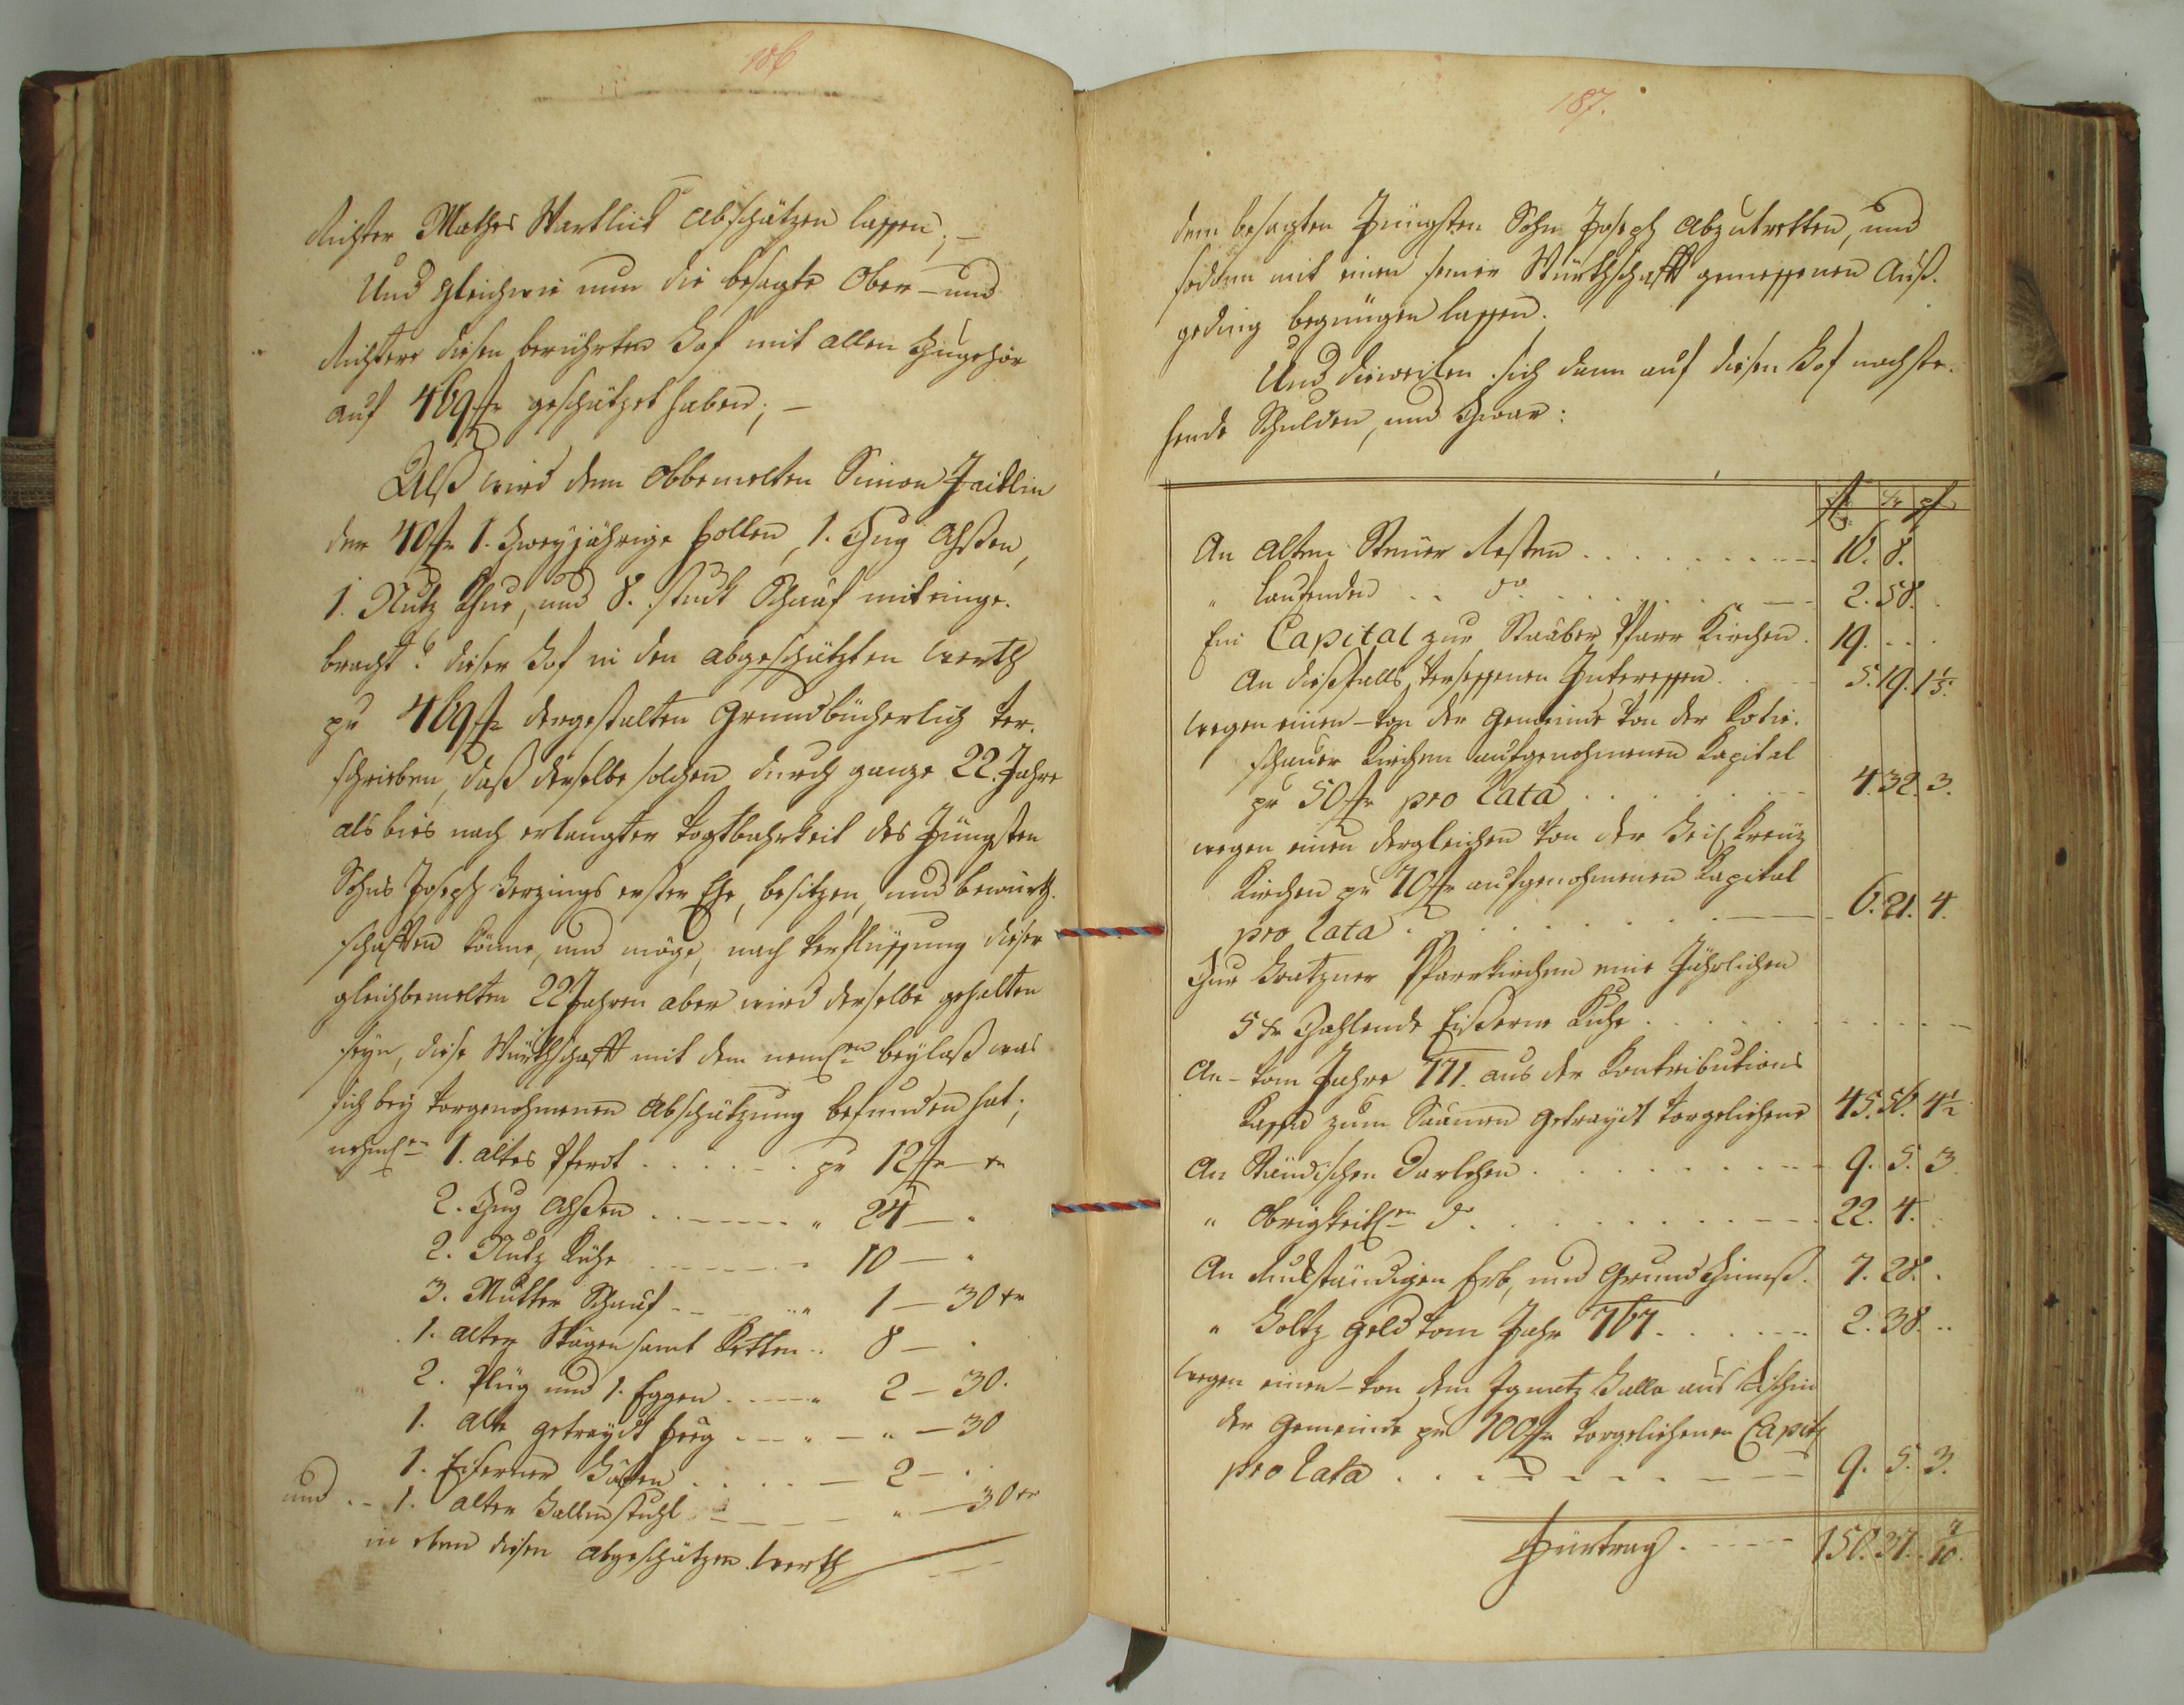 186
Richter Mathes Wartlick abschätzen lassen; –
Und gleichwie nun die besagte Ober- und
Richtere diesen berührten Hof mit allen Zugehör
auf 469 fl geschätzet haben; –
Alß wird dem obbemelten Simon Jaidlin
der 40 fl 1. Zweyjährige Follen, 1. Zug Ochsen,
1. Nutz Kuhe, und 8. stuck Schaaf mit einge-
bracht: dieser Hof in den abgeschätzten Werth
pr 469 fl dergestalten Grundbücherlich ver-
schrieben, daß derselbe solchen durch ganze 22. Jahre
als bies nach erlangter Vogtbahrkeit des Jüngsten
Sohns Joseph Herzings erster Ehe, besitzen, und bewürth-
schaften könne, und möge, nach Verflüssung dieser
gleichbemelten 22 Jahren aber wird derselbe gehalten
seyn, diese Würthschaft mit dem nemlen beylaß was
sich bey vorgenohmenen Abschätzung befunden hat;
nehmlen 1. altes Pferdt . . . . . . pr 12 fl – xr
2. Zug Ochsen . . – – – – . " 24 – .
2. Nutz Kühe – – – – – 10 – "
3. Mutter Schaaf – – . . . " 1 – 30 xr
1. alter Wagen samt Ketten . . 8 – .
2. Pflüg und 1. Eggen . – – – " 2 – 30.
1. alte getraydt Feeg . – – " – " – 30
1. Eiserner Hafen . . . . – 2 – .
und . – 1. alter Hallmstuhl – – – – " – 30 xr
in eben diesen abgeschätzen Werth
187.
dem besagten Jüngsten Sohn Joseph abzutretten, und
sodann mit einen seiner Würthschaft gemessenen Auß-
geding begnügen lassen.
Und dieweilen sich dann auf diesen Hof nachste-
hende Schulden, und Zwar:
fl xr pf
An alten Steuer Resten . . . . . . . . – – – 16. 8.
" laufenden . . do . . . . . . . – – 2. 58. .
Ein Capital zur Pfarr Kirchen . 19. . . .
An dießfalls versessenen Interessen . . . 5. 19. 1 1/5.
wegen einen – von der Gemeinde von der
schauer Kirchen aufgenohmenen Kapital
pr 50 fl pro rata . . . . . . . – – 4. 32. 3.
wegen einen dergleichen von der Heil Kreuz
Kirchen pr 70 fl aufgenohmenen Kapital
pro rata . . . . . . . . – – – 6. 21. 4.
Zur Gratzner Pfarrkirchen eine Jährlichen
5 xr Zahlende Eiserne Kuhe . . . . . . . . . . –
An – vom Jahre 771. aus der Kontributions
Kassa zum Saamen getraydt vorgeliehene 45. 56. 4 1/2
An Ständischen Darlehen . . . . . . . – – 9. 5. 3
" Obrigkeitlen do . . . . . . . . – – – 22. 4. .
An Rukständigen Erb, und Grund Zinnß . 7. 28. .
" Holtz geld vom Jahr 767 . . . . . – – 2. 38. . .
wegen einen – von dem Ignatz Halla aus
der Gemeinde pr 100 fl vorgeliehenen Capitl
pro rata . . . – – – . . – – – 9. 5. 3.
Fürtrag . – – – – 150. 37. 7/10.